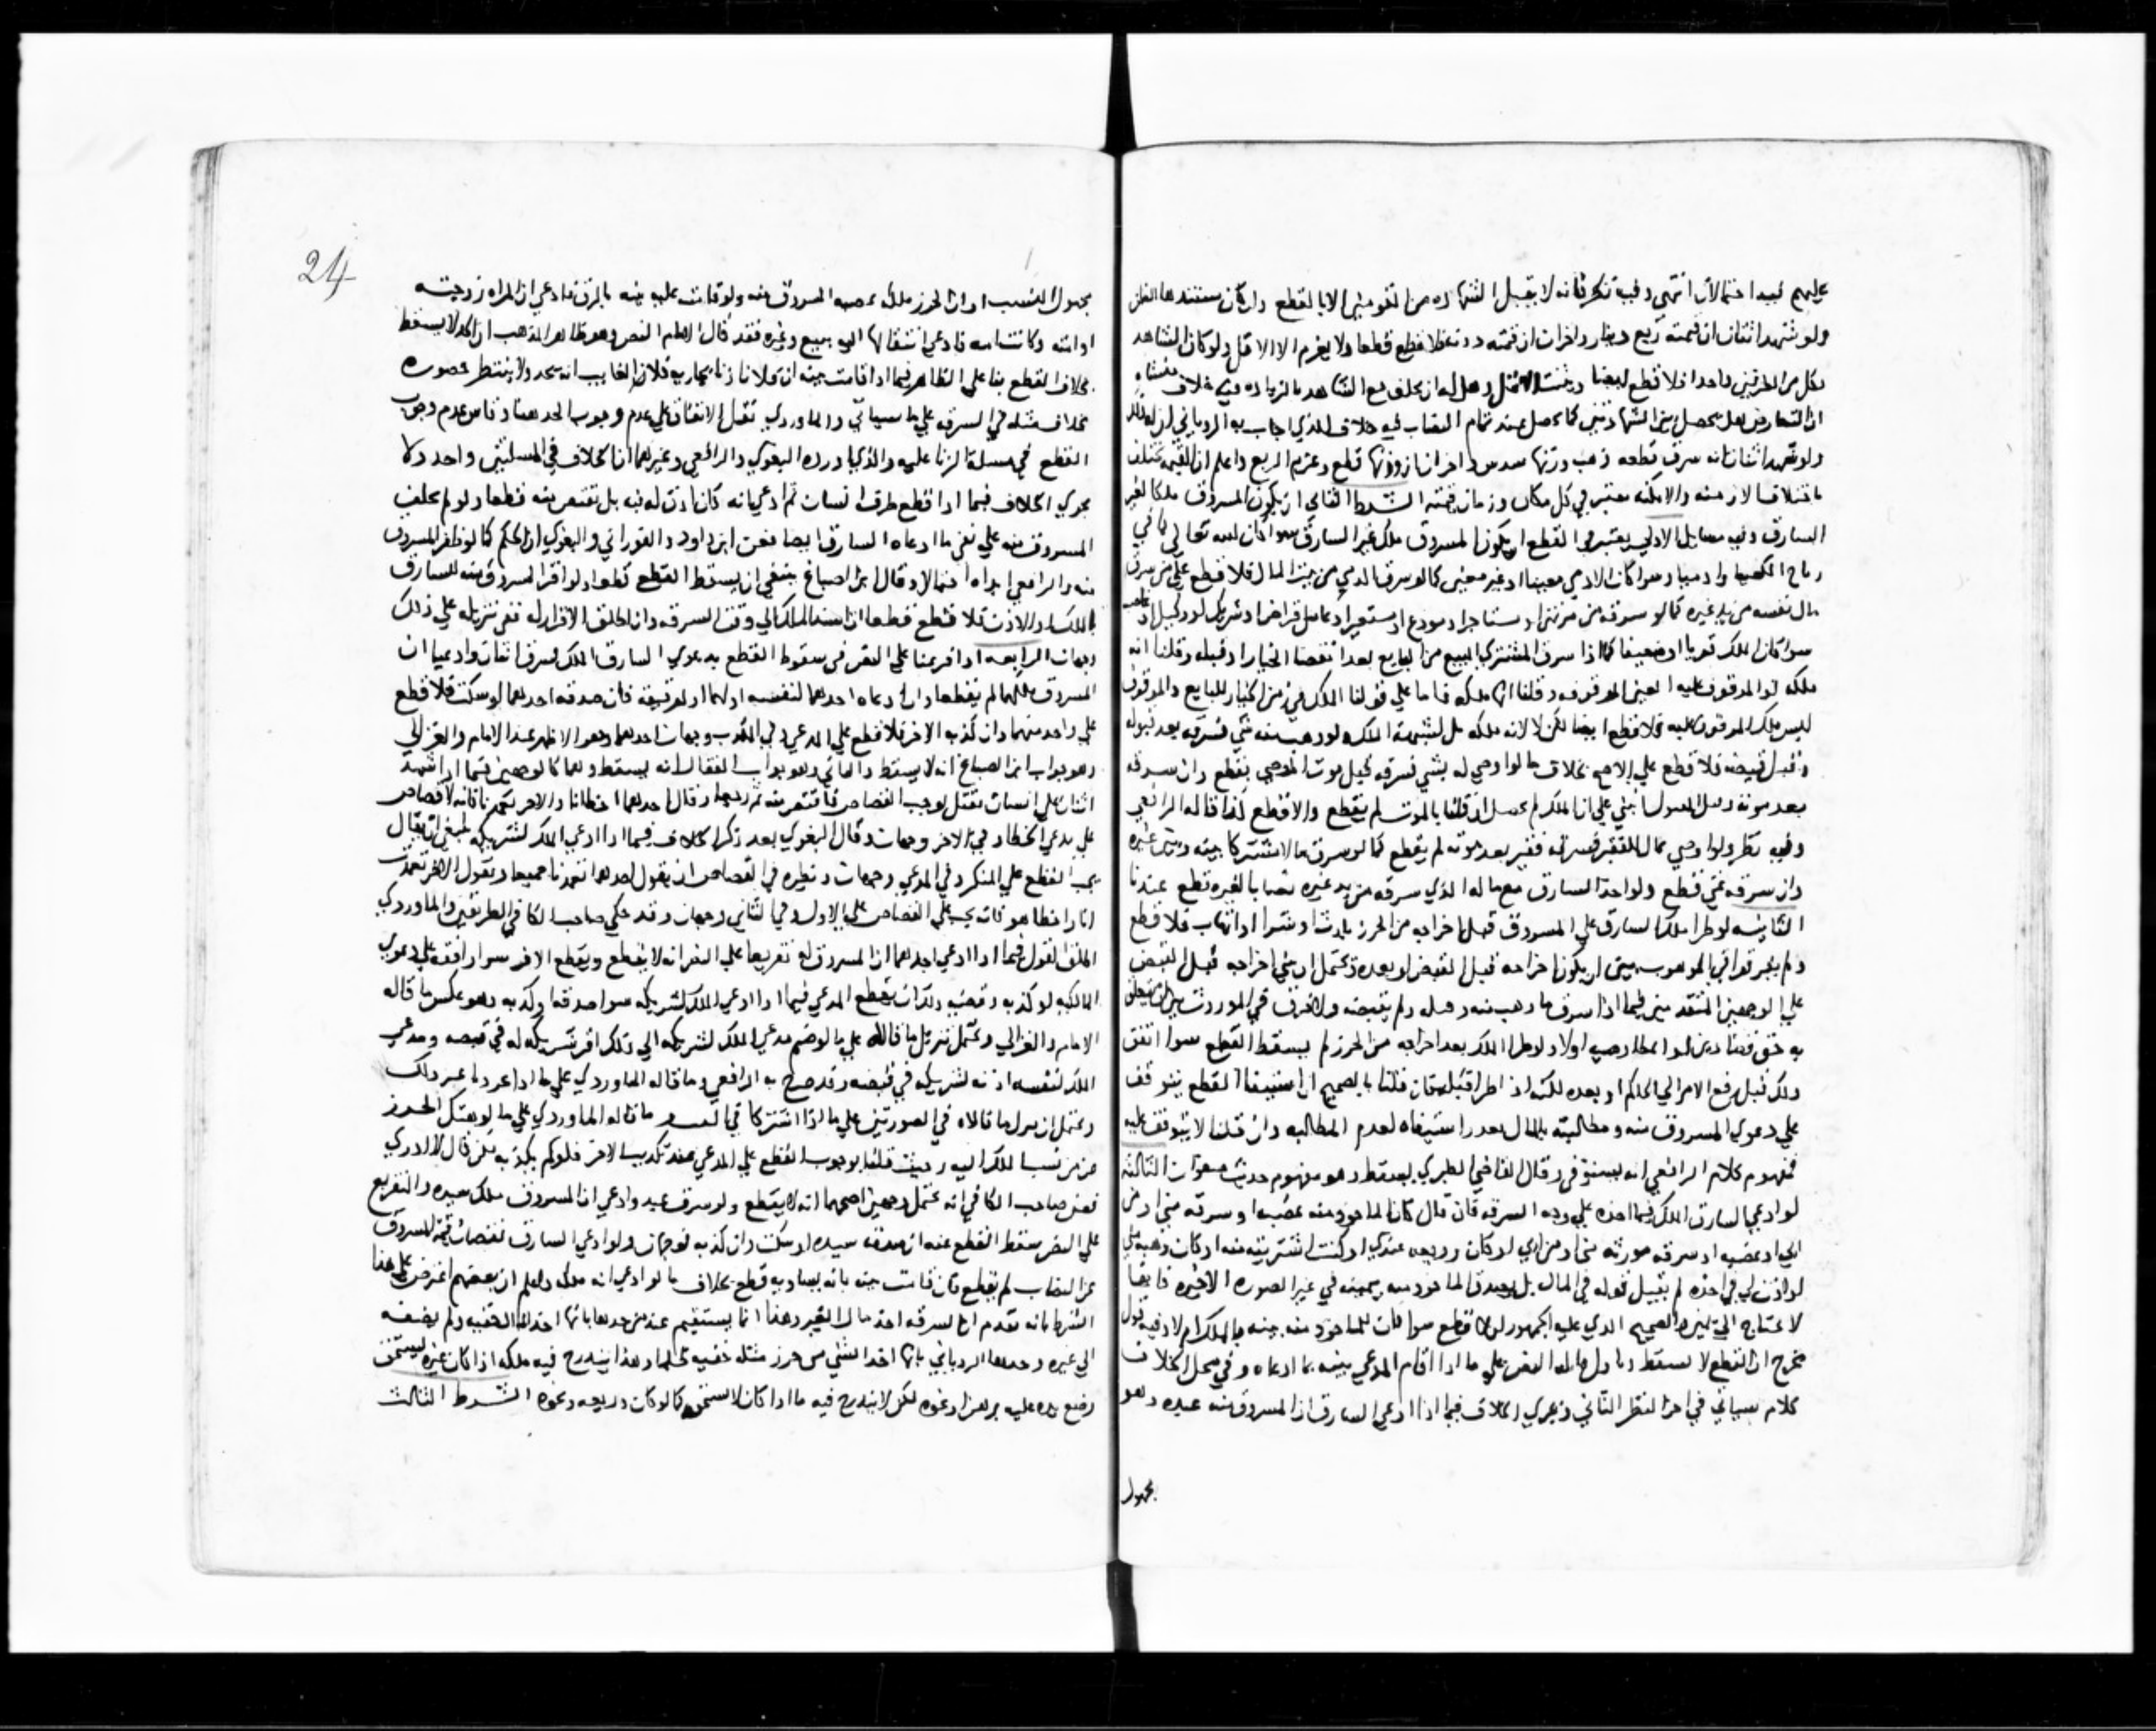 عليهم فيه احتمالان انتهى وفيه نظر فانه لا يقبل الشهادة من المقومين الا بالقطع وان كان مستندها الظن
ولو شهد اثنان ان قيمته ربع دينار واخران ان قيمته دونه فلا قطع قطعا ولا يغرم الا الاقل ولو كان الشاهد
بكل من الطرفين واحدا فلا قطع ايضا ويثبت الاقل وهل له ان يحلف مع الشاهد بالزيادة فيه خلاف منشاه
ان التعارض هل يحصل بين الشهادتين كما يحصل عند تمام النصاب فيه خلاف الذي اجاب به الروياني ان له ذلك
ولو شهد اثنان انه سرق قطعة ذهب وزنها سدس واخران ان وزنها ربع قطع وغرم الربع واعلم ان القيمة تختلف
باختلاف الازمنة والامكنة معتبر في كل مكان وزمان قيمته الشرط الثاني ان يكون المسروق ملكا لغير
السارق وفيه مسايل الاولى يعتبر في القطع ان يكون المسروق ملك غير السارق سوا كان لله تعالى كما في
رتاج الكعبة او ادميا وسوا كان الادمي معينا او غير معين كما لو سرق الذمي من بيت المال فلا قطع على من سرق
مال نفسه من يد غيره كما لو سرقه من مرتهن او مستاجر او مودع او مستعير او عامل قراض او شريك او وكيل او غاصب
سوا كان الملك قويا او ضعيفا كما اذا سرق المشتري المبيع من البايع بعد انقضا الخيار او قبله وقلنا انه
ملكه او الموقوف عليه العين الموقوفة وقلنا انها ملكه فاما على قولنا الملك في زمن الخيار للبايع والموقوف
ليس ملك الموقوف عليه فلا قطع ايضا لكن لا لانه ملكه بل لشبهة الملك ولو وهب منه شي فسرقه بعد قبوله
وقبل قبضه فلا قطع على الاصح بخلاف ما لو اوصي له بشي فسرقه قبل موت الموصي يقطع وان سرقه
بعد موته وقبل القبول بني على ان الملك بم يحصل ان قلنا بالموت لم يقطع والا قطع كذا قاله الرافعي
وفيه نظر ولو اوصي بمال للفقرا فسرقه فقير بعد موته لم يقطع كما لو سرق مالا مشتركا بينه وبين غيره
وان سرقه غني قطع ولو اخذ السارق مع ماله الذي سرقه من يد غيره نصابا لغيره قطع عندنا
الثانية لو طرا ملك السارق على المسروق قبل اخراجه من الحرز بارث او شرا او اتهاب فلا قطع
ولم يفرقوا في الموهوب بين ان يكون اخراجه قبل القبض او بعده ويحتمل ان يبني اخراجه قبل القبض
على الوجهين المتقدمين فيما اذا سرق ما وهب منه وقبله ولم يقبضه ولا فرق في الموروث بين ان يتعلق
به حق قضا دين او امضا وصية او لا ولو طرا الملك بعد اخراجه من الحرز لم يسقط القطع سوا اتفق
ذلك قبل رفع الامر الى الحاكم او بعده لكنه اذا طرا قبله فان قلنا بالصحيح ان استيفا القطع يتوقف
على دعوى المسروق منه ومطالبته بالمال تعذر استيفاه لعدم المطالبة وان قلنا لا يتوقف عليه
فمفهوم كلام الرافعي انه يستوفى وقال القاضي الطبري يسقط وهو مفهوم حديث صفوان الثالثة
لو ادعى السارق الملك فيما اخذه على وجه السرقة فان قال كان الماخوذ منه غصبه او سرقه مني او من
ابي او غصبه او سرقه مورثه مني او من ابي او كان وديعة عندي او كنت اشتريته منه او كان وهبه مني
او اذن لي في اخذه لم يقبل قوله في المال بل يصدق الماخوذ منه بيمينه في غير الصورة الاخيرة فانها
لا تحتاج الى يمين والصحيح الذي عليه الجمهور انه لا قطع سوا قامت للماخوذ منه بينة بالملك ام لا وفيه قول
مخرج ان القطع لا يسقط وتاول قايله النص على ما اذا اقام المدعي بينة بما ادعاه وفي محل الخلاف
كلام سياتي في اخر النظر الثاني ويجري الخلاف فيما اذا ادعى السارق ان المسروق منه عبده وهو
مجهول
24
مجهول النسب او ان الحرز ملكه غصبه المسروق منه ولو قامت عليه بينة بالزنا فادعى ان المراة زوجته
او امته وكانت امة فادعى انتقالها اليه ببيع وغيره فقد قال الامام النص وهو ظاهر المذهب ان الحد لا يسقط
بخلاف القطع بنا على الظاهر فيما اذا قامت بينة ان فلانا زنا بجارية فلان الغايب انه يحد ولا ينتظر حضوره
بخلاف مثله في السرقة على ما سياتي والماوردي نقل الاتفاق على عدم وجوب الحد هنا وقاس عدم وجوب
القطع في مسلة الزنا عليه والذي اورده البغوي والرافعي وغيرهما ان الخلاف في المسلتين واحد ولا
يجري الخلاف فيما اذا قطع طرف انسان ثم ادعى انه كان اذن له فيه بل يقتص منه قطعا ولو لم يحلف
المسروق منه على نفي ما ادعاه السارق ايضا فعن ابن داود والفوراني والبغوي ان الحكم كما لو ظفر المسروق
منه والرافعي ابداه احتمالا وقال ابن الصباغ ينبغي ان يسقط القطع قطعا ولو اقر المسروق منه للسارق
بالملك او الاذن فلا قطع قطعا ان اسند الملك الى وقت السرقة وان اطلق الاقرار له ففي تنزيله على ذلك
وجهان الرابعة اذا فرعنا على النص في سقوط القطع بدعوى السارق الملك فسرق اثنان وادعيا ان
المسروق ملكهما لم يقطعا وان ادعاه احدهما لنفسه او لهما او لرفيقه فان صدقه احدهما او سكت فلا قطع
على واحد منهما وان كذبه الاخر فلا قطع على المدعي وفي المكذب وجهان احدهما وهو الاظهر عند الامام والغزالي
وهو جواب ابن الصباغ انه لا يسقط والثاني وهو جواب القفال انه يسقط وهما كالوجهين فيما اذا شهد
اثنان على انسان بقتل يوجب القصاص فاقتص منه ثم رجعا وقال احدهما اخطانا والاخر تعمدنا فانه لا قصاص
على مدعي الخطا وفي الاخر وجهان وقال البغوي بعد ذكر الخلاف فيما اذا ادعى الملك لشريكه ينبغي ان يقال
يجب القطع على المنكر وفي المدعي وجهان ونظيره في القصاص ان يقول احدهما تعمدنا جميعا ويقول الاخر تعمدت
انا واخطا هو فانه يجب على القصاص على الاول وفي الثاني وجهان وقد حكى صاحب الكافي الطريقين والماوردي
اطلق القول فيما اذا ادعى احدهما ان المسروق له تفريعا على النص انه لا يقطع ويقطع الاخر سوا وافقه على دعوى
المالكية او كذبه وقضيه ذلك ان يقطع المدعي فيما اذا ادعى الملك لشريكه سوا صدقه او كذبه وهو عكس ما قاله
الامام والغزالي ويحتمل تنزيل ما قالاه على ما لو ضم مدعي الملك لشريكه الى ذلك اقر شريكه له في قبضه ومدعي
الملك لنفسه اذنه لشريكه في قبضه وقد صرح به الرافعي وما قاله الماوردي على ما اذا عرو عن ذلك
ويحتمل ان ينزل ما قالاه في الصورتين على ما اذا اشتركا في وما قاله الماوردي على ما لو هتك الحرز
من نسب الملك اليه وحيث قلنا بوجوب القطع على المدعي عند تكذيب الاخر فلو لم يكذبه لكن قال لا ادري
فعن صاحب الكافي انه يحتمل وجهين اصحهما انه لا يقطع ولو سرق عبد وادعى ان المسروق ملك سيده والتفريع
على النص سقط القطع عنه ان صدقه سيده او سكت وان كذبه فوجهان ولو ادعى السارق نقصان قيمة المسروق
عن النصاب لم يقطع فان قامت بينة بانه يساويه قطع بخلاف ما لو ادعى انه ملكه واعلم ان بعضهم اعترض على هذا
الشرط بانه تقدم ان السرقة اخذ مال الغير وهذا انما يستقيم عند من حدها بانها اخذ الخفية ولم يضفه
الى غيره وحدها الروياني بانها اخذ الشي من حرز مثله خفية ظلما وهذا يندرج فيه ملكه اذا كان غيره يستحق
وضع يده عليه برهن او نحوه لكن لا يندرج فيه ما اذا كان لا يستحق كما لو كان وديعة ونحوه الشرط الثالث